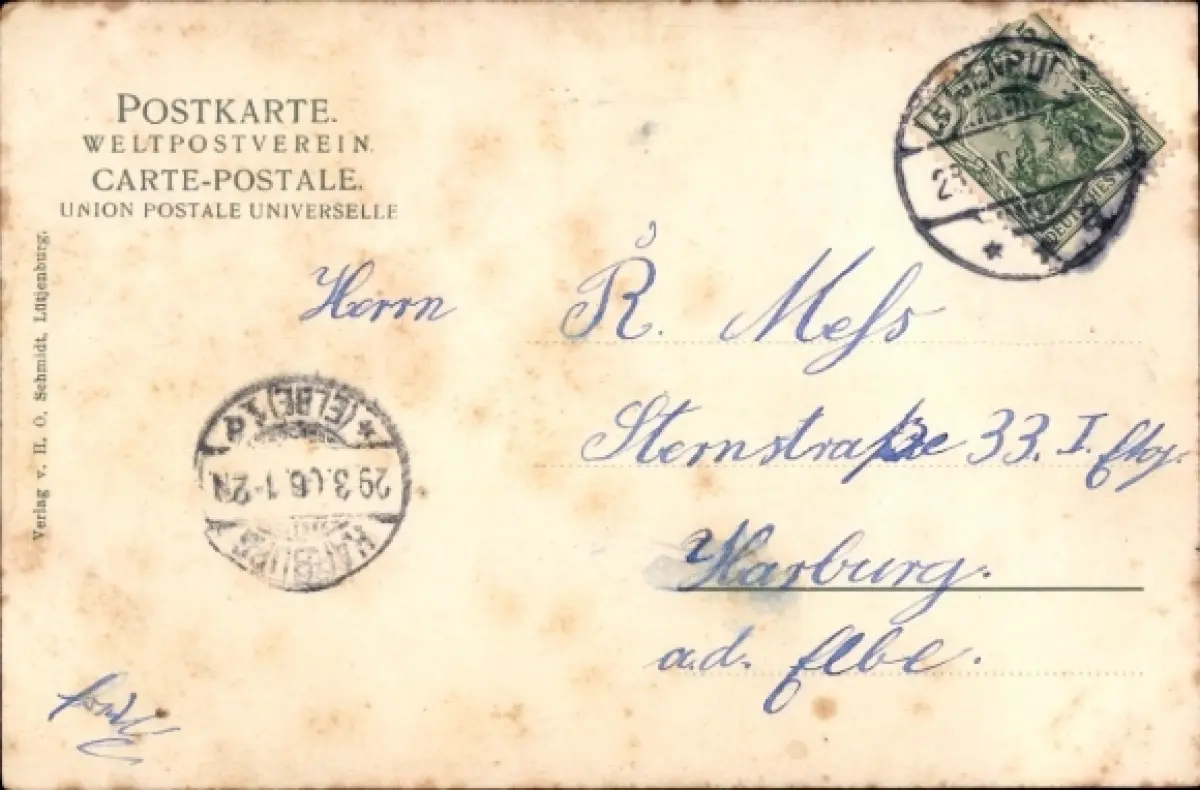 POSTKARTE.
WELTPOSTVEREIN.
CARTE-POSTALE.
UNION POSTALE UNIVERSELLE
Verlag v. H. O. Schmidt, Lütjenburg.
Herrn R. Meſs
Sternstraße 33. I. Etg.
Harburg.
a.d. Elbe.
HARBURG
(ELBE) 1
29.3.06.1-2N
DEUTSCHES